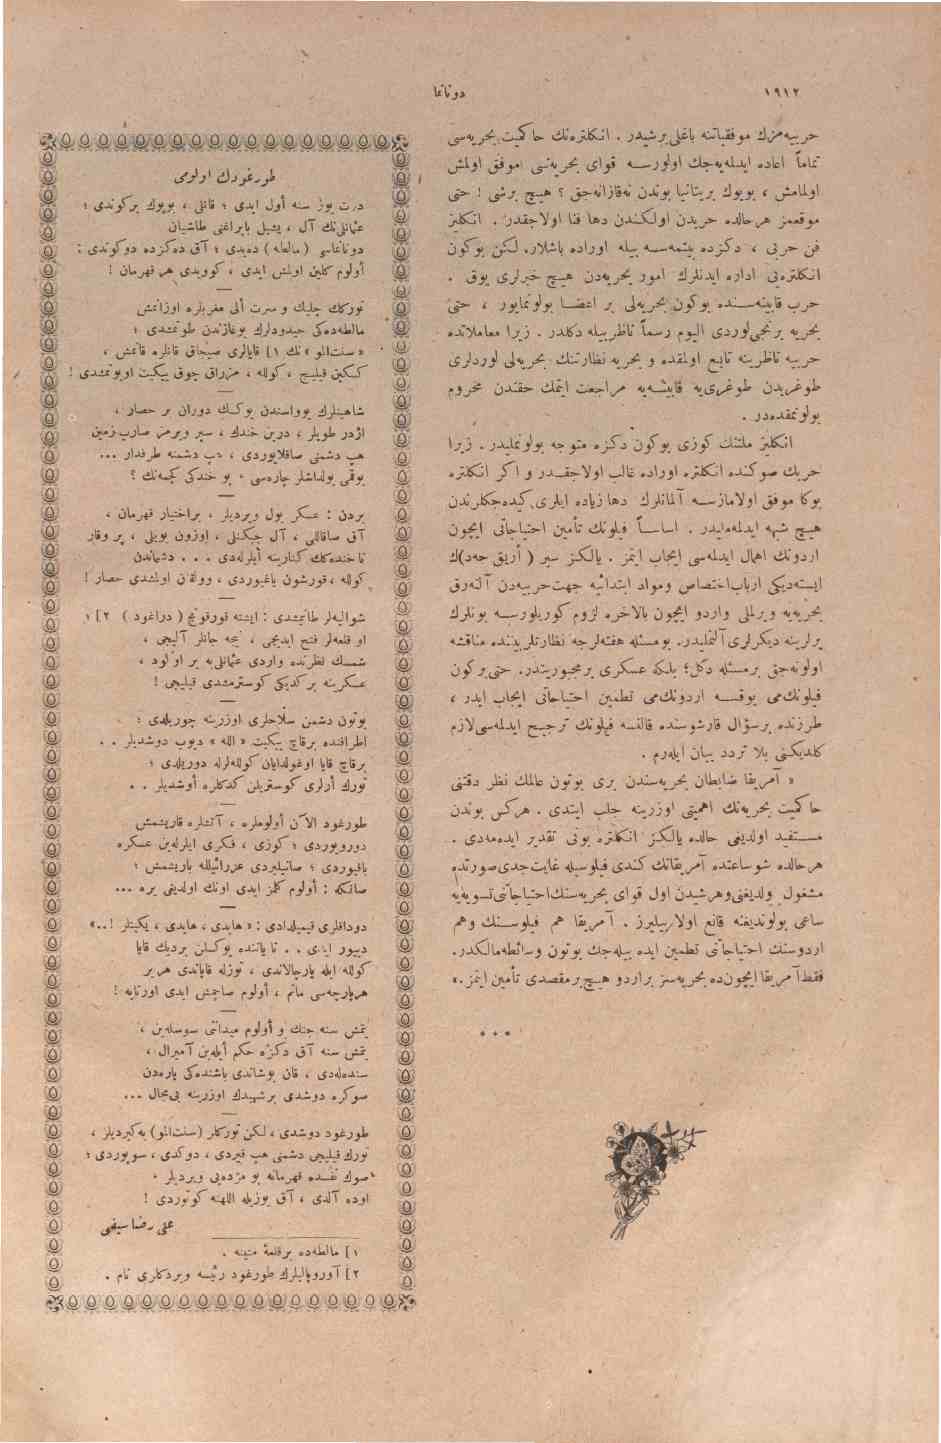 ١٩١٢
دوننما
حربیه‌مزك موفقیاتنه باغلی برشیدر . انكلتره‌نك حاكمیت بحریه‌سی
تماماً اعاده ایدلمه‌یه‌جك اولورسه قوای بحریه‌نسی موفق اولمش
اولمامش ، بویوك بریتانیا بوندن نه‌قازانه‌جق ؟ هیچ برشی ! حتی
موقعمز هرحالده حربدن اولكندن دها فنا اولاجقدر . انكلیز
فن حربی ، دكزده بیتمه‌سه بیله اوراده باشلار. لكن بوكون
انكلتره‌یی اداره ایدنلرك امور بحریه‌دن هیچ خبرلری یوق .
حرب قابینه‌سنده بوكون بحریه‌لی بر اعضا بولونمایور ، حتی
بحریه برنجی لوردی الیوم رسماً ناظر بیله دكلدر . زیرا معاملاتده
حربیه ناظرینه تابع اولمقده و بحریه نظارتنك بحریه‌لی لوردلری
طوغریدن طوغری‌یه قابینه‌یه مراجعت ایتمك حقندن محروم
بولونمقده‌در .
انكلیز ملتنك كوزی بوكون دكزه متوجه بولونملیدر . زیرا
حربك صوكنده انكلتره اوراده غالب اولاجقدر و اكر انكلتره
بوكا موفق اولامازسه آلمانلرك دها زیاده ایلری كیده‌جكلرندن
هیچ شبهه ایدلمه‌ملیدر . اساساً فیلونك تأمین احتیاجاتی ایچون
اردونك اهمال ایدلمه‌سی ایجاب ایتمز . یالكز سیر ( اریق جه‌د)ك
ایسته‌دیكی ارباب اختصاص ومواد ابتدائیه جهت حربیه‌دن آلنه‌رق
بحریه‌یه ویرلملی واردو ایچون بالاخره لزوم كوریلورسه بونلرك
یرلرینه دیكرلری آلنملیدر. بومسئله هفته‌لرجه نظارتلر بیننده مناقشه
اولونه‌جق برمسئله دكل؛ بلكه عسكری برمجبوریتدر. حتی بركون
فیلونك‌می یوقسه اردونك‌می تطمین احتیاجاتی ایجاب ایدر ،
طرزنده برسؤال قارشوسنده قالنسه فیلونك ترجیح ایدلمه‌سی لازم
كلدیكنی بلا تردد بیان ایله‌رم .
« آمریقا ضابطان بحریه‌سندن بری بوتون عالمك نظر دقتنی
حاكمیت بحریه‌نك اهمیتی اوزرینه جلب ایتدی . هركس بوندن
مستفید اولدیغی حالده یالكز انكلتره بونی تقدیر ایده‌مه‌دی .
هرحالده شو ساعتده آمریقانك كندی فیلوسیله غایت جدی صورتده
مشغول ولدیغی وهرشیدن اول قوای بحریه‌سنك احتیاجاتنی تسویه‌یه
ساعی بولوندیغنه قانع اولا‌بیلیرز . آمریقا هم فیلوسنك وهم
اردوسنك احتیاجاتی تطمین ایده بیله‌جك بوتون وسائطه مالكدر.
فقط آمریقا ایچون‌ده بحریه‌سز براردو هیچ برمقصدی تأمین ایتمز.»
* * *
طورغودك اولومی
درت یوز سنه أول ایدی ؛ قانلی ، بویوك بركوندی ؛
عثمانلی‌نك آل ، یشیل بایراغنی طاشیان
دوننماسی (مالطه) ده‌یدی ؛ آق ده‌كزده دوكوندی :
أولوم كلین اولمش ایدی ، كوویدی هر قهرمان !
تورك‌ك چلیك و سرت ألی مغربلره اوزانمش
مالطه‌ده‌كی حیدودلرك بوغازندن طوتمشدی ؛
« سنت‌المو » نك [١ قایالری صیجاق قانلره قانمش ،
كسكین قیلیج ، كولله ، مزراق چوق ییكیت اویوتمشدی !
شاهینلرك یوواسندن یوكسك دوران بر حصار ،
اژدر طوپلر ، درین خندك ، سیر ویرمز صارب زمین
هپ دشمنی صاقلایوردی ، هپ دشمنه طرفدار ...
یوقمی یولداشلر چاره‌سی ، بو خندكی كچمه‌نك ؟
بردن : عسكر یول ویردیلر ، براختیار قهرمان ،
آق صاقاللی ، آل چپكنلی ، اوزون بویلی ، پر وقار
تا خندككك كنارینه أیلرله‌دی . . . دشماندن
كولله ، قورشون یاغیوردی ، وولقان اولمشدی حصار !
شوالیه‌لر طانیمشدی : ایشته قورقونج ( دراغود ) [٢ ،
او قلعه‌لر فتح ایدیجی ، نیجه جانلر آلیجی ،
شمسك نظرنده واردی عثمانلی‌یه بر اوغود ،
عسكرینه بر كدیكی كوسترمشدی قیلیجی !
بوتون دشمن سلاحلری اوزرینه چوریلدی ؛
اطرافنده برقاچ ییكیت « الله » دیوب دوشدیلر . .
برقاچ قایا اوغولدایان كولله‌لرله دوریلدی ؛
تورك أرلری كوستریلن كدكلره أوشدیلر . .
طورغود الآن أولوملره ، آتشلره قاریشمش
دورویوردی ؛ كوزی ، فكری ایلرله‌ین عسكره
باقیوردی ؛ صانیلیردی عزرائیلله باریشمش ؛
صانكه : أولوم كلمز ایدی اونك اولدیغی یره ...
دوداقلری قیمیلدادی : « هایدی ، هایدی ، یكیتلر !..»
دییور ایدی . . تا یاننده یوكسلن بردیك قایا
كولله ایله پارچالاندی ، توزله قاپاندی هریر
هرپارچه‌سی ماتم ، أولوم صاچمش ایدی اورتایه !
یتمش سنه جنك و أولوم میدانی سوسله‌ین ،
یتمش سنه آق دكزه حكم أیله‌ین آمیرال ،
سنده‌له‌دی ، قان بوشاندی باشنده‌كی یاره‌دن
سوكره دوشدی برشهیدك اوزرینه بی‌مجال ...
طورغود دوشدی ، لكن توركلر (سنت‌المو) یه كیردیلر ،
تورك قیلیجی دشمنی هپ قیردی ، دوكدی ، سوپوردی ؛
صوك نفسده قهرمانه بو مژده‌یی ویردیلر ،
اوده آلدی ، آق یوزیله اللهنه كوتوردی !
علی رضا سیفی
[١ مالطه‌ده برقلعهٔ متینه .
[٢ آوروپالیلرك طورغود رئیسه ویردكلری نام .